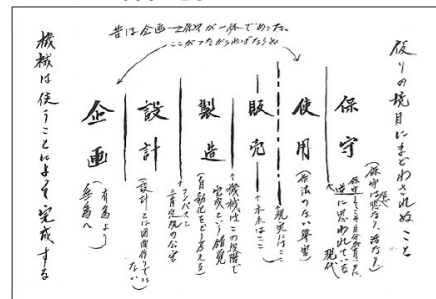 仮りの境目にまどわされぬこと
昔は企画―保守が一体であった。
ここがつながらねばならぬ
保守
(保守は悪なり、治なり)
逆に思われている
現代
使用
(保法のない
現実はここ
販売
本来はここ
製造
機械はこの段階で
完成という錯覚
(自動化をどう考える)
設計
コンパスと
三角定規の公害
(設計とは図面作りでは
ない)
企画
(有為より
無為へ
機械は使うことによって完成する